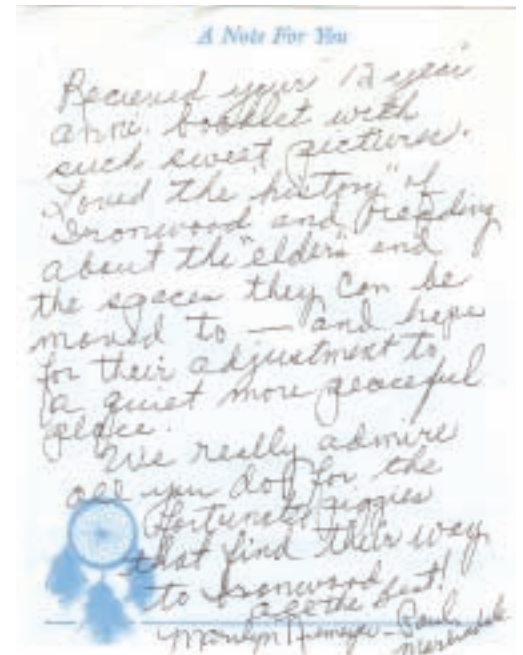 A Note For You
Recieved your 12 year
anni. booklet with
such sweet pictures.
Loved the "history" of
Ironwood and reading
about the "elders" and
the spaces they can be
moved to — and hope
for their adjustment to
a quiet more peaceful
place.
We really admire
all you do for the
fortunate piggies
that find their way
to Ironwood
All the best!
Marilyn - Paul